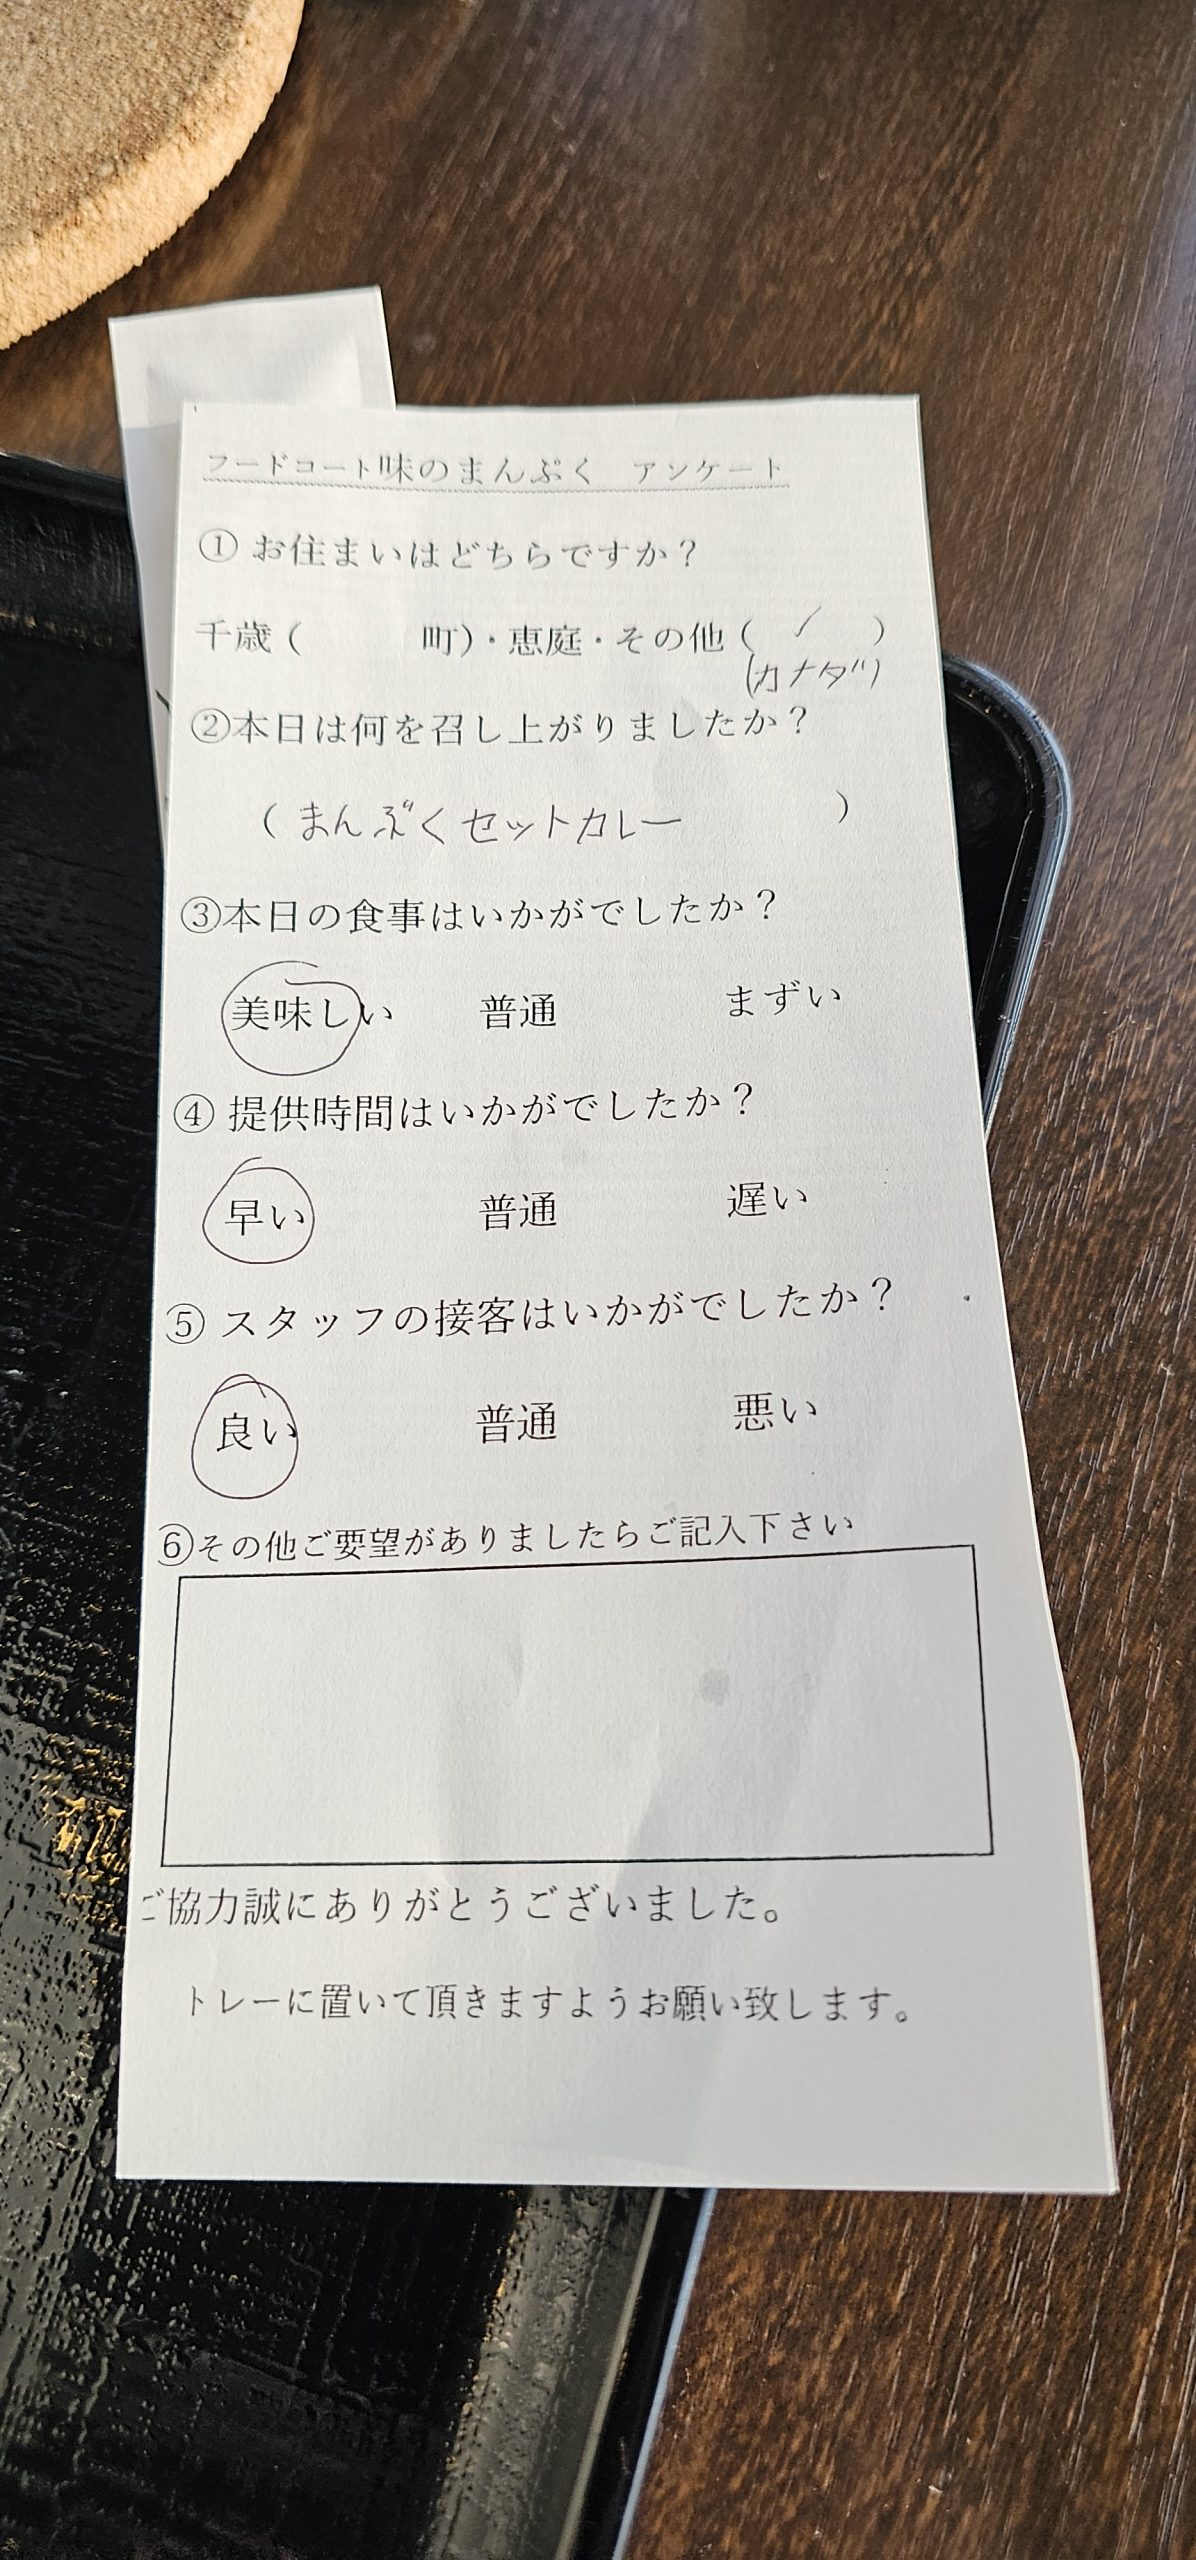 フードコート味のまんぷく　アンケート
① お住まいはどちらですか？
千歳（　　　町）・恵庭・その他（ ✓ ）
(カナダ)
②本日は何を召し上がりましたか？
（ まんぶくセットカレー ）
③本日の食事はいかがでしたか？
美味しい　普通　まずい
④ 提供時間はいかがでしたか？
早い　普通　遅い
⑤ スタッフの接客はいかがでしたか？
良い　普通　悪い
⑥その他ご要望がありましたらご記入下さい
ご協力誠にありがとうございました。
トレーに置いて頂きますようお願い致します。